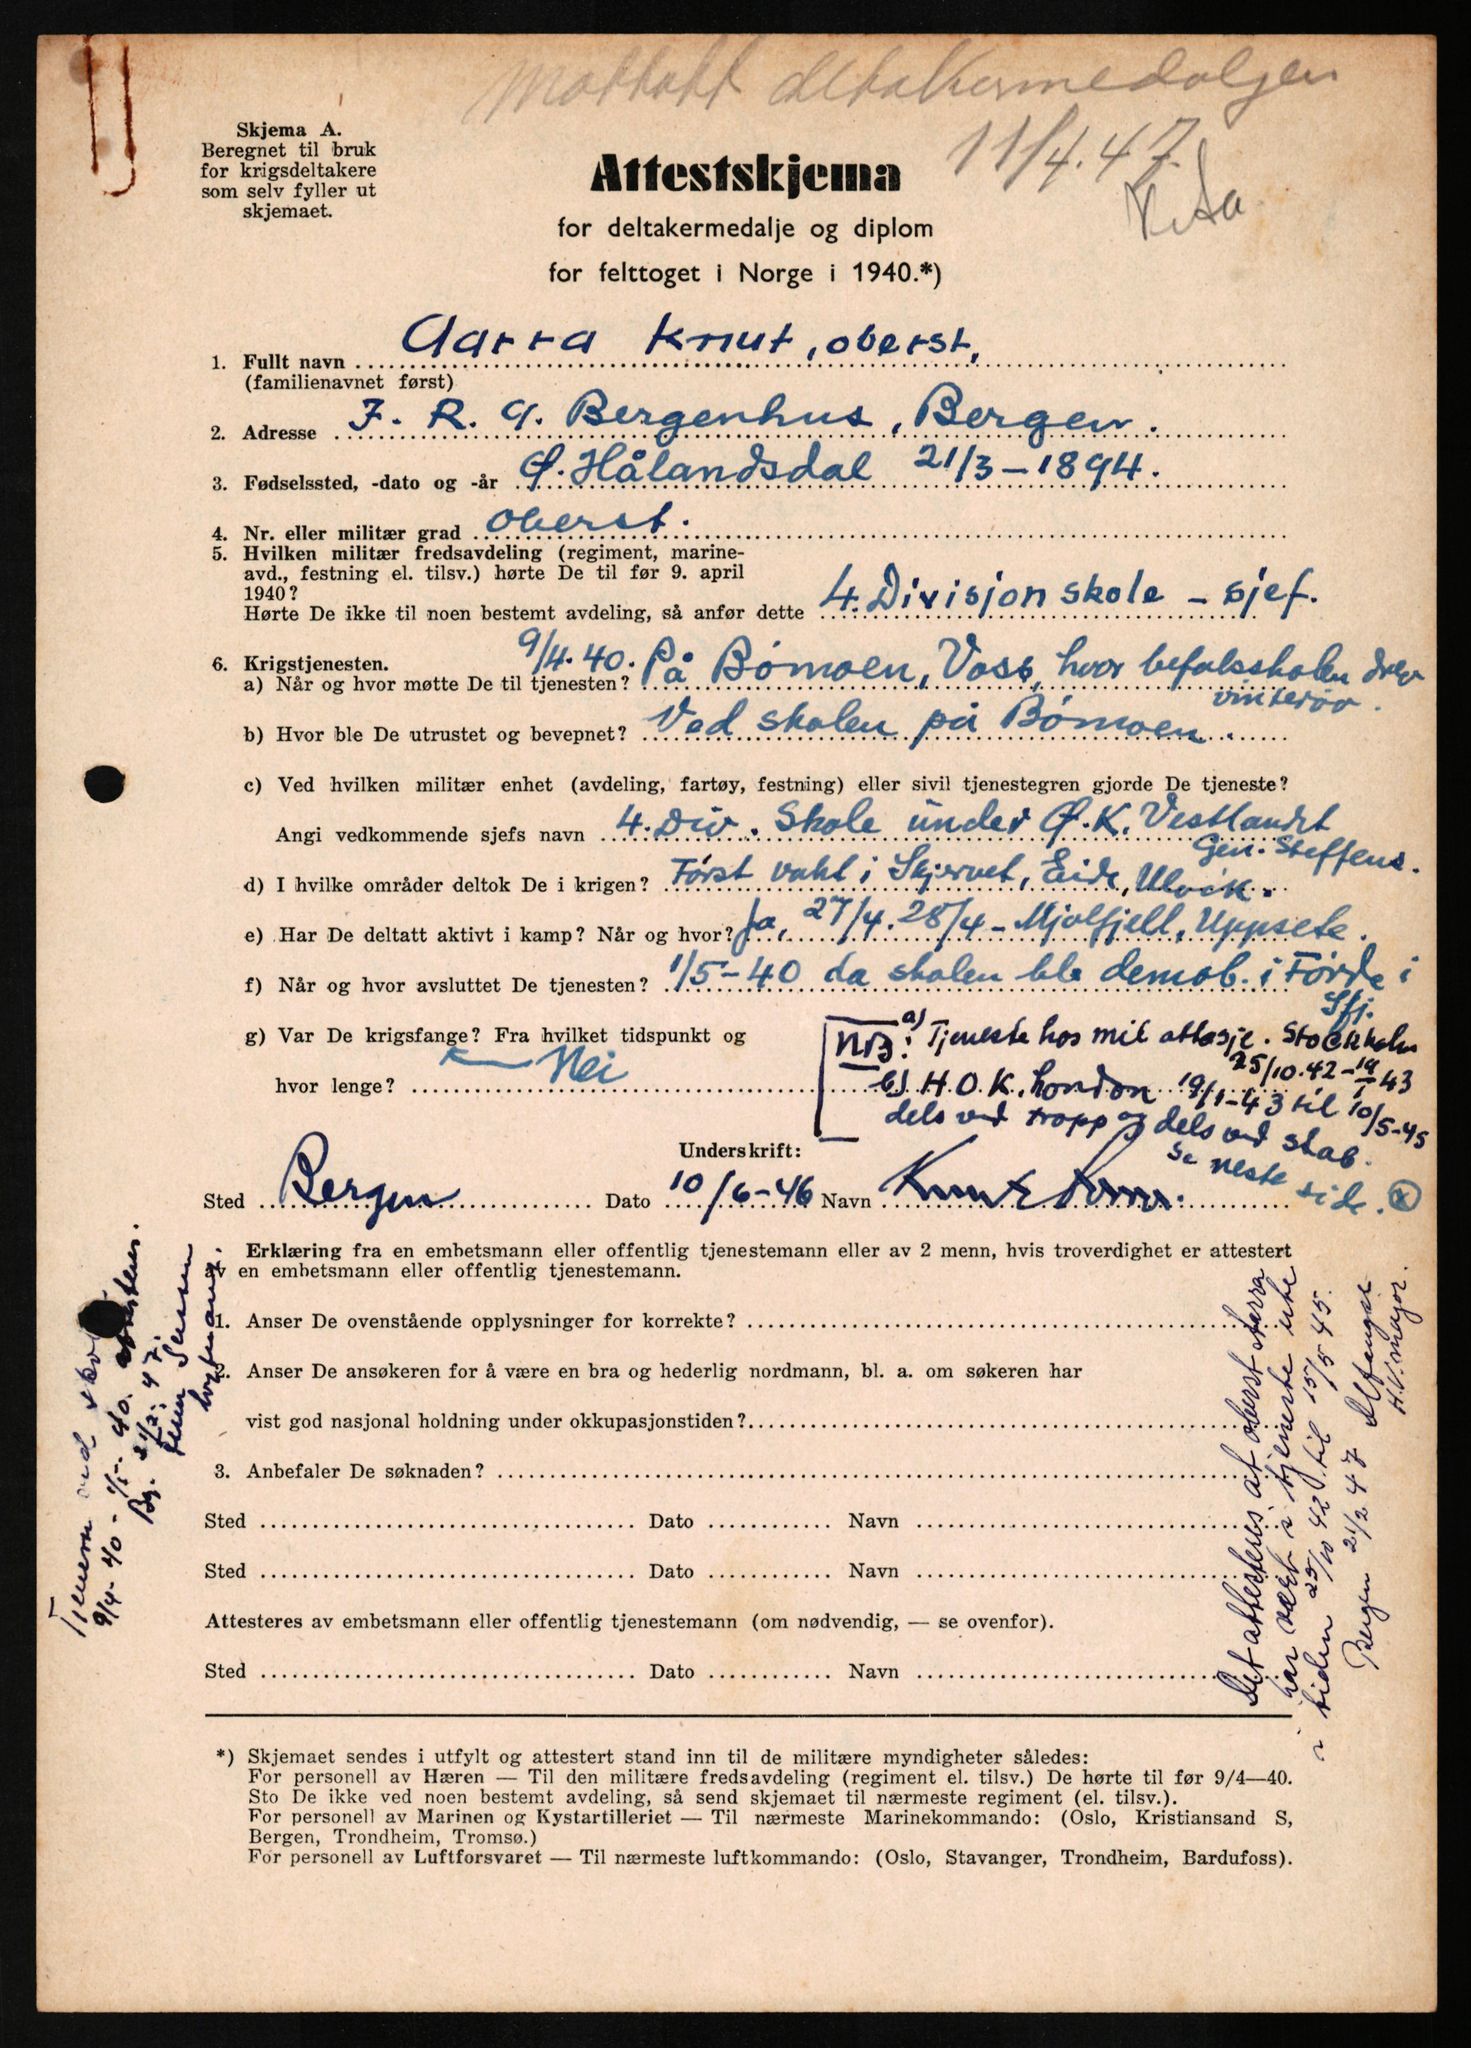 Mottatt deltakermedaljen
11/4.47.
K. Aa
Skjema A.
Beregnet til bruk
for krigsdeltakere
som selv fyller ut
skjemaet.
Attestskjema
for deltakermedalje og diplom
for felttoget i Norge i 1940.*)
1. Fullt navn Aarra Knut, oberst,
(familienavnet først)
2. Adresse I. R. 9. Bergenhus, Bergen.
3. Fødselssted, -dato og -år Ø. Hålandsdal 21/3-1894.
4. Nr. eller militær grad oberst.
5. Hvilken militær fredsavdeling (regiment, marine-
avd., festning el. tilsv.) hørte De til før 9. april
1940?
Hørte De ikke til noen bestemt avdeling, så anfør dette 4. Divisjonskole - sjef.
6. Krigstjenesten.
a) Når og hvor møtte De til tjenesten? 9/4.40. På Bømoen, Voss, hvor befalsskolen drev
vinterøv.
b) Hvor ble De utrustet og bevepnet? Ved skolen på Bømoen.
c) Ved hvilken militær enhet (avdeling, fartøy, festning) eller sivil tjenestegren gjorde De tjeneste?
Angi vedkommende sjefs navn 4. Div. Skole under Ø.K. Vestlandet
Gen. Steffens.
d) I hvilke områder deltok De i krigen? Først vakt i Skjervet, Eide, Ulvik.
e) Har De deltatt aktivt i kamp? Når og hvor? Ja, 27/4. 28/4 - Mjølfjell, Uppsete.
f) Når og hvor avsluttet De tjenesten? 1/5-40 da skolen ble demob. i Førde i
Sfj.
g) Var De krigsfange? Fra hvilket tidspunkt og
hvor lenge? Nei
NB: a) Tjeneste hos mil attasje. Stockholm
25/10.42-19/1 43
b) H.O.K. London 19/1-43 til 10/5-45
dels ved tropp og dels ved stab.
Se neste side. (x)
Underskrift:
Sted Bergen Dato 10/6-46 Navn Knut Aarra.
Erklæring fra en embetsmann eller offentlig tjenestemann eller av 2 menn, hvis troverdighet er attestert
av en embetsmann eller offentlig tjenestemann.
1. Anser De ovenstående opplysninger for korrekte?
2. Anser De ansøkeren for å være en bra og hederlig nordmann, bl. a. om søkeren har
vist god nasjonal holdning under okkupasjonstiden?
3. Anbefaler De søknaden?
Sted Dato Navn
Sted Dato Navn
Attesteres av embetsmann eller offentlig tjenestemann (om nødvendig, — se ovenfor).
Sted Dato Navn
Tjenen ved
9/4-40 - 1/5-40. attesteres.
Bg. 21/2.47.
Det attesteres at oberst Aarra
har vært i tjeneste ute
i tiden 25/10 42 til 15/5 45.
Bergen 21/2 47
H.V. major.
*) Skjemaet sendes i utfylt og attestert stand inn til de militære myndigheter således:
For personell av Hæren — Til den militære fredsavdeling (regiment el. tilsv.) De hørte til før 9/4—40.
Sto De ikke ved noen bestemt avdeling, så send skjemaet til nærmeste regiment (el. tilsv.).
For personell av Marinen og Kystartilleriet — Til nærmeste Marinekommando: (Oslo, Kristiansand S,
Bergen, Trondheim, Tromsø.)
For personell av Luftforsvaret — Til nærmeste luftkommando: (Oslo, Stavanger, Trondheim, Bardufoss).